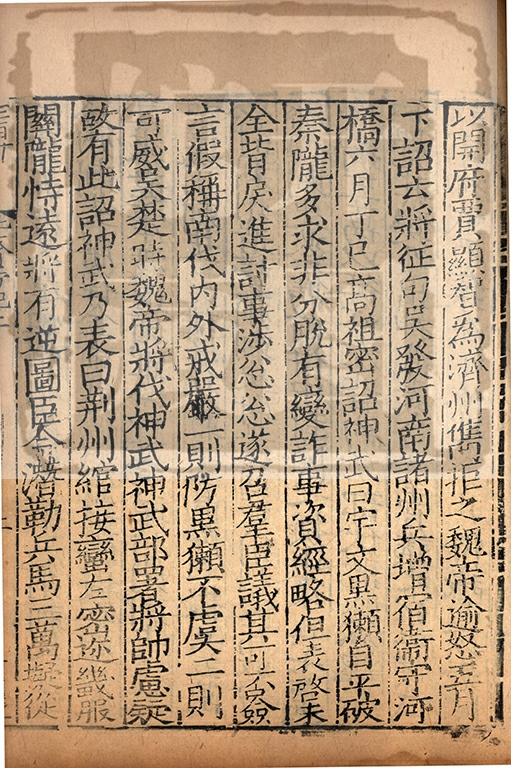 以開府賈顯智為濟州儁拒之魏帝逾怒五月
下詔云將征句吳發河南諸州兵增宿衞守河
橋六月丁巳高祖密詔神武曰宇文黑獺自平破
秦隴多求非分脫有變詐事資經略但表啓未
全背戾進討事涉忩忩遂召羣臣議其可否僉
言假稱南伐内外戒嚴一則防黑獺不虞二則
可威吳楚時魏帝將伐神武神武部署將帥慮疑
故有此詔神武乃表曰荆州綰接蠻左密迩畿服
關隴恃遠將有逆圖臣今潛勒兵馬三萬擬從